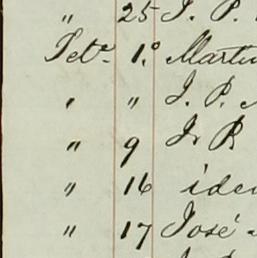 " 25 J. P.
Setᵉ 1.º Marti
" " J. P.
" 9 J. P.
" 16 idem
" 17 José